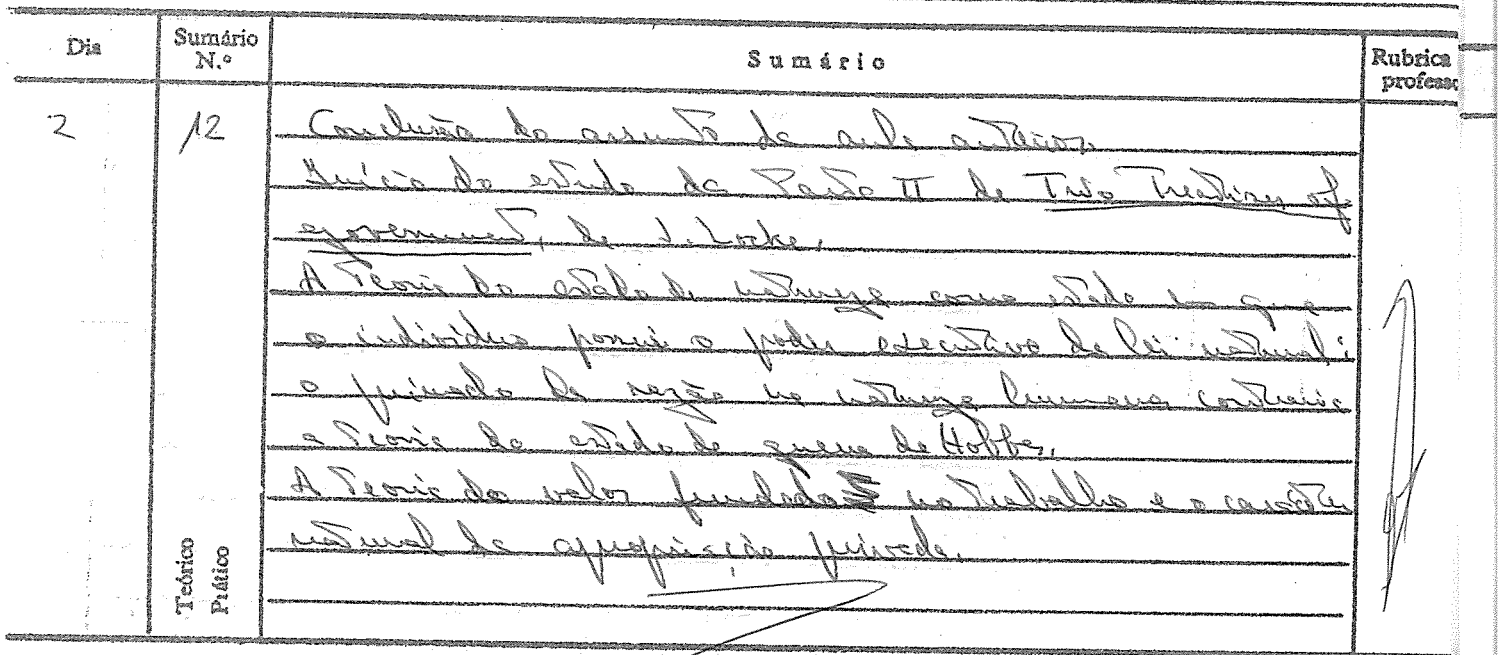 Dia Sumário N.º Sumário Rubrica professo
2 12 Conclusão do assunto da aula anterior.
Início do estudo da Parte II de Two Treatises of
government, de J. Locke.
A teoria do estado de natureza como estado em que
o indivíduo possui o poder executivo da lei natural:
o primado da razão na natureza humana contraria
a teoria do estado de guerra de Hobbes.
A teoria do valor fundado no trabalho e o carácter
natural da apropriação privada.
Teórico
Prático